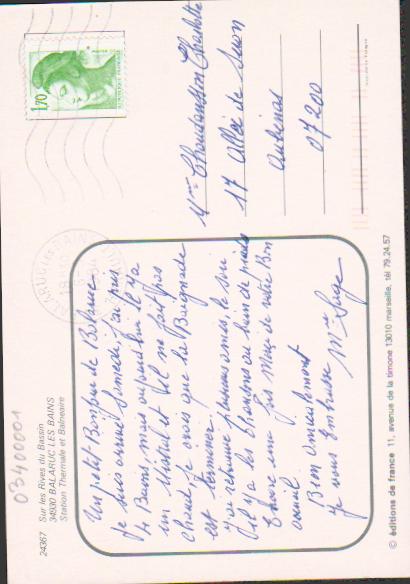 24367 Sur les Rives du Bassin
34930 BALARUC LES BAINS
Station Thermale et Balnéaire
03400001
BALARUC LES BAINS
1,70
Un petit Bonjour de Balaruc
Je suis arrivé Samedi, j'ai pris
4 Bains, mais aujourd'hui il y a
un Mistral et il ne fait pas
chaud, je crois que la Baignade
est terminée.
J'ai retrouvé plusieurs amies, le soir
il y a les chansons au bain de pieds
Encore une fois Merci de votre Bon
accueil.
Bien amicalement
Je vous Embrasse
Mme
Mme Charlotte
17 Allée de
Aubenas
07200
© éditions de france 11, avenue de la timone 13010 marseille, tél 79.24.57